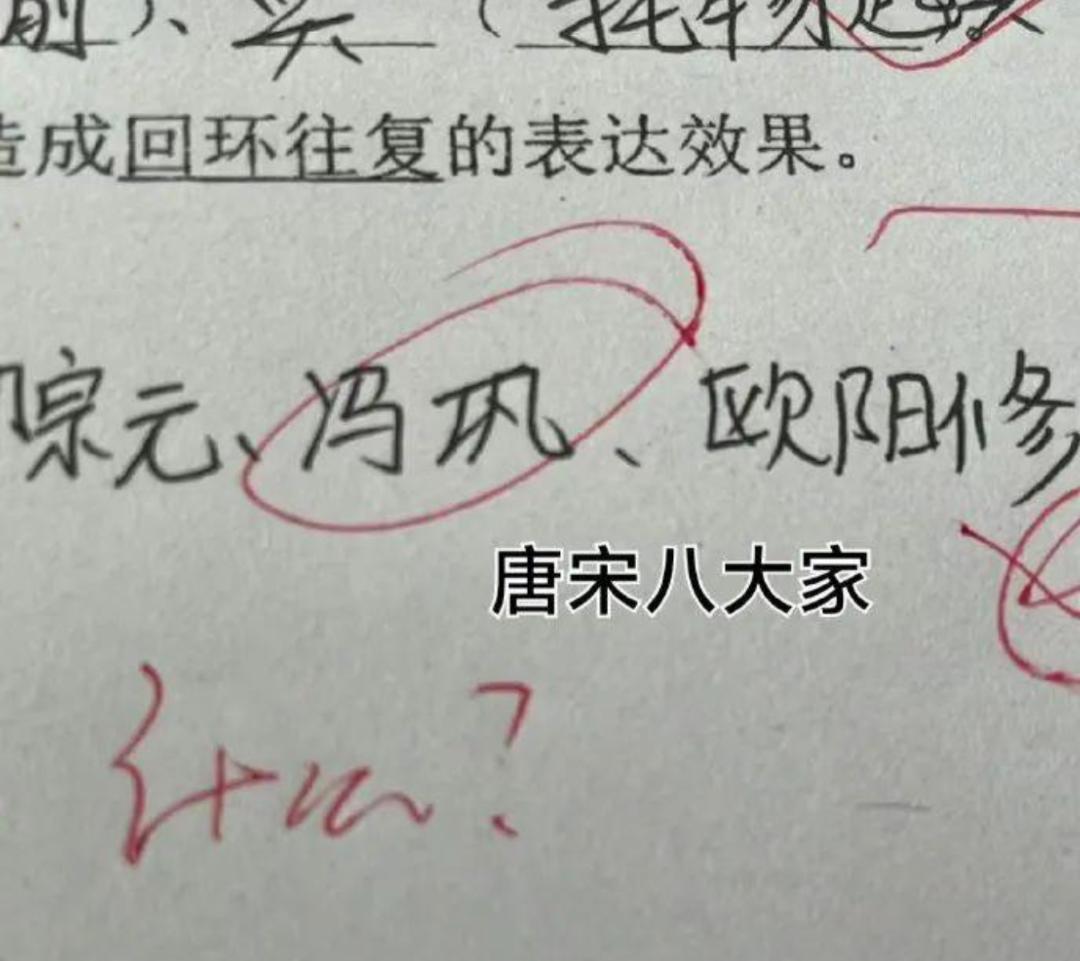 前）、实（托物
造成回环往复的表达效果。
宗元、冯巩、欧阳修
唐宋八大家
什么？